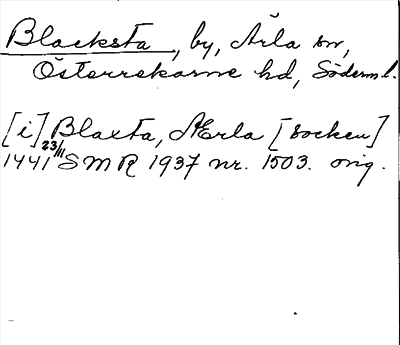 Blacksta, by, Ärla sn,
Österrekarne hd, Söderml.
[i] Blaxta, Ærla [socken]
1441 23/11 SMR 1937 nr. 1503. orig.